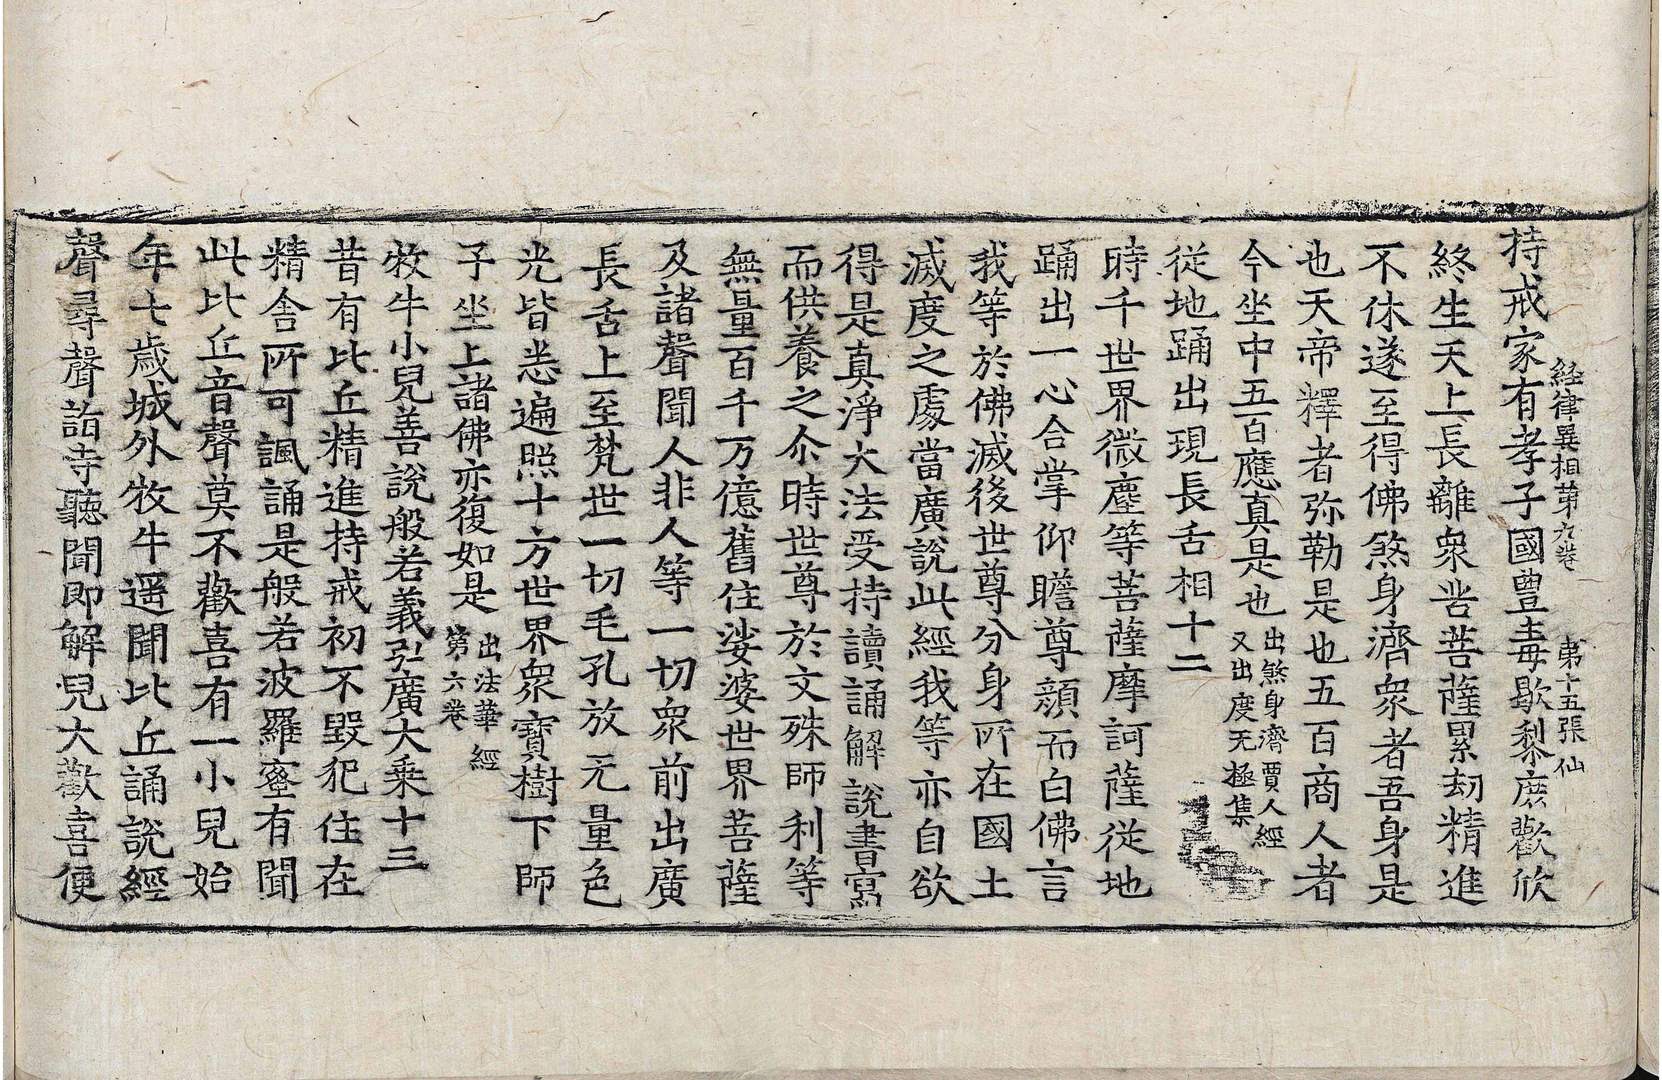 経律異相第九卷　第十五張　仙
持戒家有孝子國豊毒歇黎庶歡欣
終生天上長離衆苦菩薩累劫精進
不休遂至得佛煞身濟衆者吾身是
也天帝釋者弥勒是也五百商人者
今坐中五百應真是也出煞身濟賈人經又出度无極集
従地踊出現長舌相十二
時千世界微塵等菩薩摩訶薩従地
踊出一心合掌仰瞻尊顔而白佛言
我等於佛滅後世尊分身所在國土
滅度之處當廣說此經我等亦自欲
得是真淨大法受持讀誦解說書寫
而供養之尒時世尊於文殊師利等
無量百千万億舊住娑婆世界菩薩
及諸聲聞人非人等一切衆前出廣
長舌上至梵世一切毛孔放无量色
光皆悉遍照十方世界衆寶樹下師
子坐上諸佛亦復如是出法華經第六卷
牧牛小兒善說般若義弘廣大乘十三
昔有比丘精進持戒初不毀犯住在
精舍所可諷誦是般若波羅蜜有聞
此比丘音聲莫不歡喜有一小兒始
年七歲城外牧牛遥聞比丘誦說經
聲尋聲詣寺聽聞即解兒大歡喜便